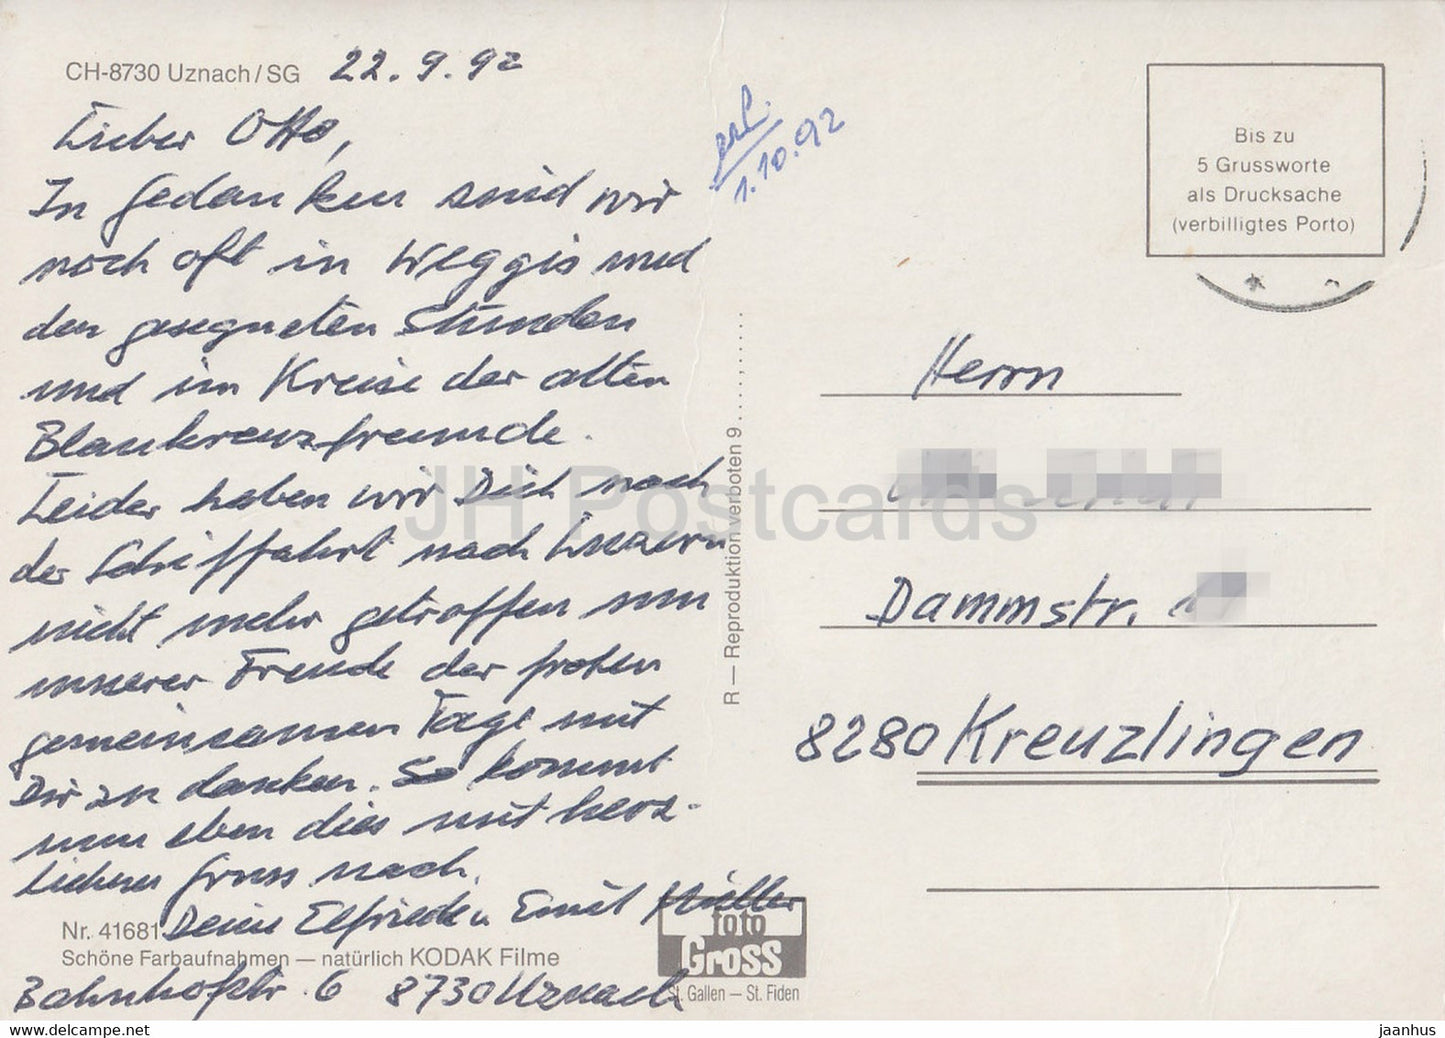 CH-8730 Uznach/SG 22.9.92
Lieber Otto,
In Gedanken sind wir
noch oft in Weggis und
den gesegneten Stunden
und im Kreise der alten
Blaukreuzfreunde.
Leider haben wir Dich nach
der Schiffahrt nach Luzern
nicht mehr getroffen um
unserer Freude der frohen
gemeinsamen Tage mit
Dir zu danken. So kommt
nun eben dies mit herz-
lichem Gruss nach.
Deine Elfriede u. Emil Müller
Bahnhofstr. 6 8730 Uznach
Nr. 41681
Schöne Farbaufnahmen — natürlich KODAK Filme
erl.
1.10.92
R — Reproduktion verboten 9
foto
Gross
St. Gallen — St. Fiden
Bis zu
5 Grussworte
als Drucksache
(verbilligtes Porto)
Herrn
Dammstr.
8280 Kreuzlingen
JH Postcards
www.delcampe.net
jaanhus